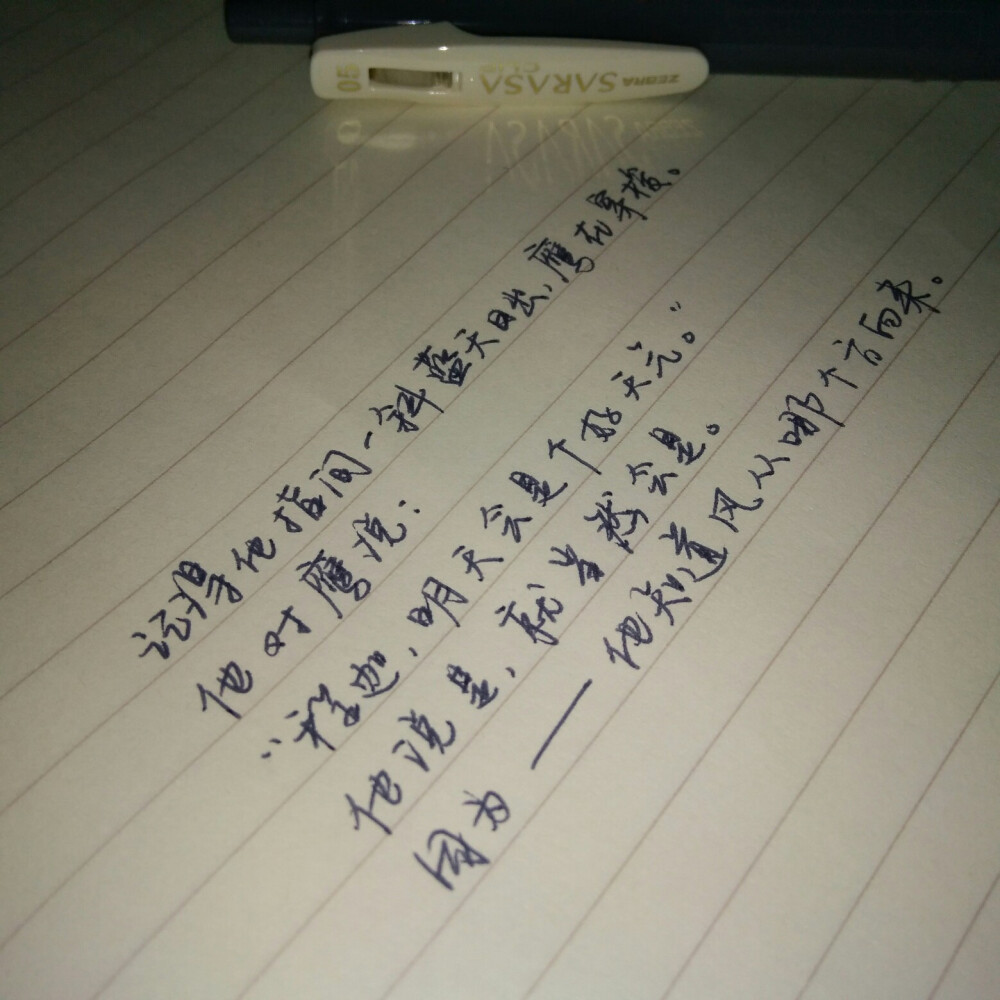 ZEBRA SARASA CLIP 05
记得他指间一斜蓝天日出,鹰在穿梭。
他对鹰说:
“释迦,明天会是个好天气。”
他说是,就当然会是。
因为——他知道风从哪个方向来。